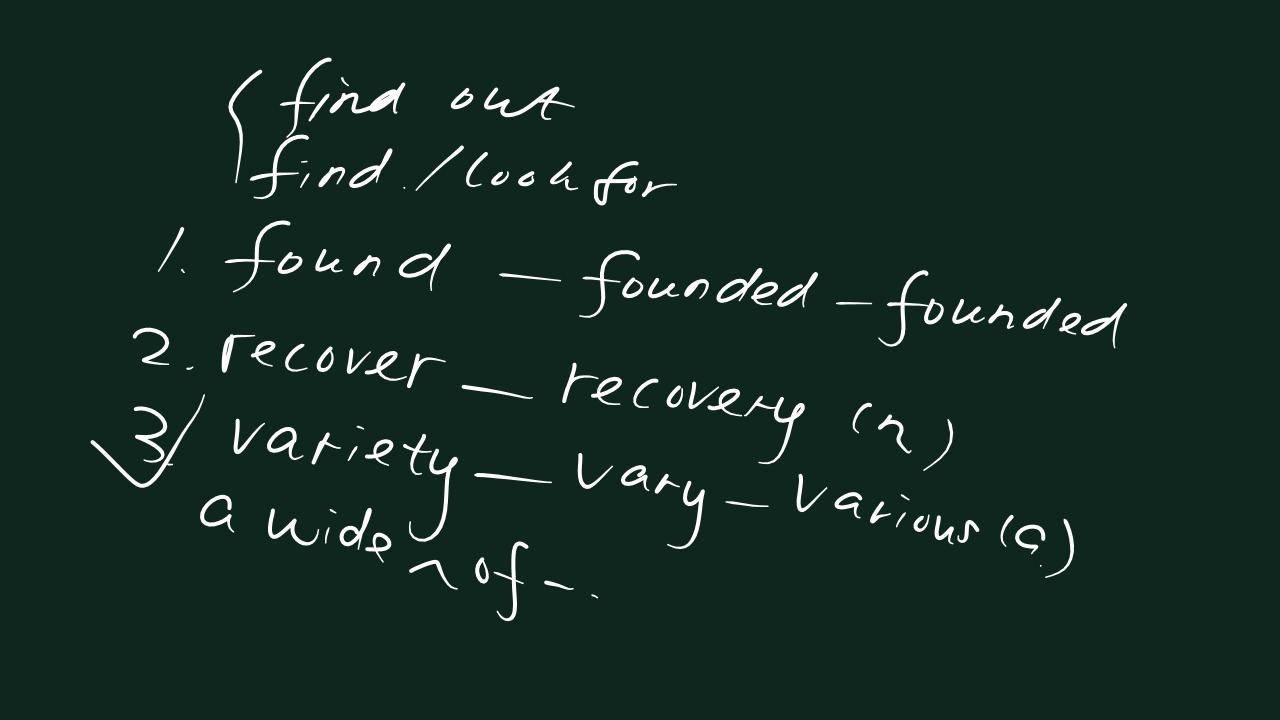 find out
find. / look for
1. found — founded — founded
2. recover — recovery (n)
3. variety — vary — various (a)
a wide ~ of - .